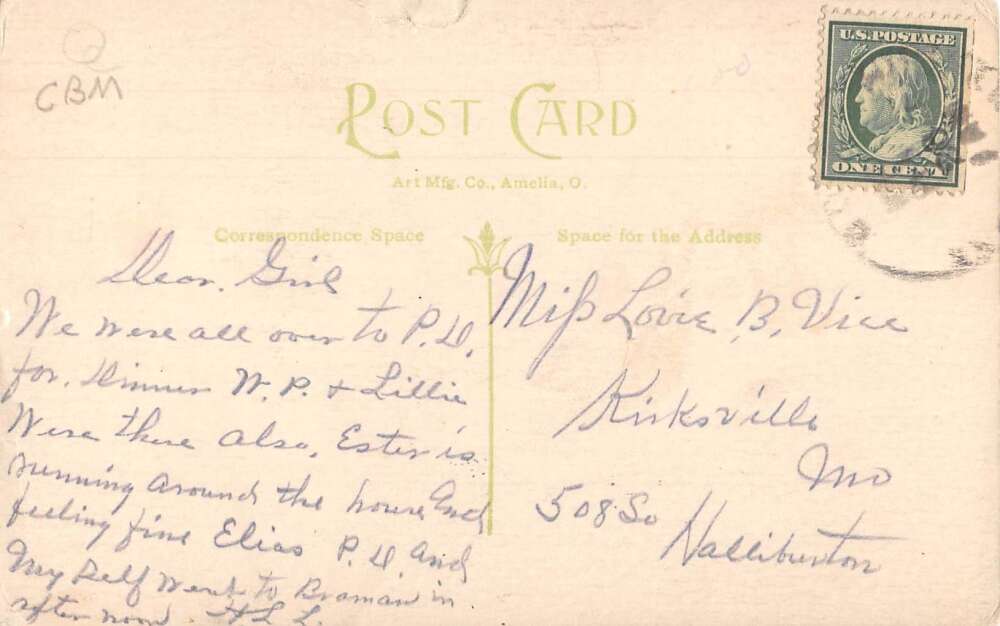 CBM
U.S. POSTAGE
ONE CENT
POST CARD
Art Mfg. Co., Amelia, O.
Correspondence Space
Space for the Address
Dear. Girl
We were all over to P.D.
for. dinner W.P. & Lillie
Were there also, Ester is
running around the house and
feeling fine Elias P.D. and
My self went to Braman in
after noon. H L L.
Miss Lovie B, Vice
Kirksville
Mo
508 So
Halliburton